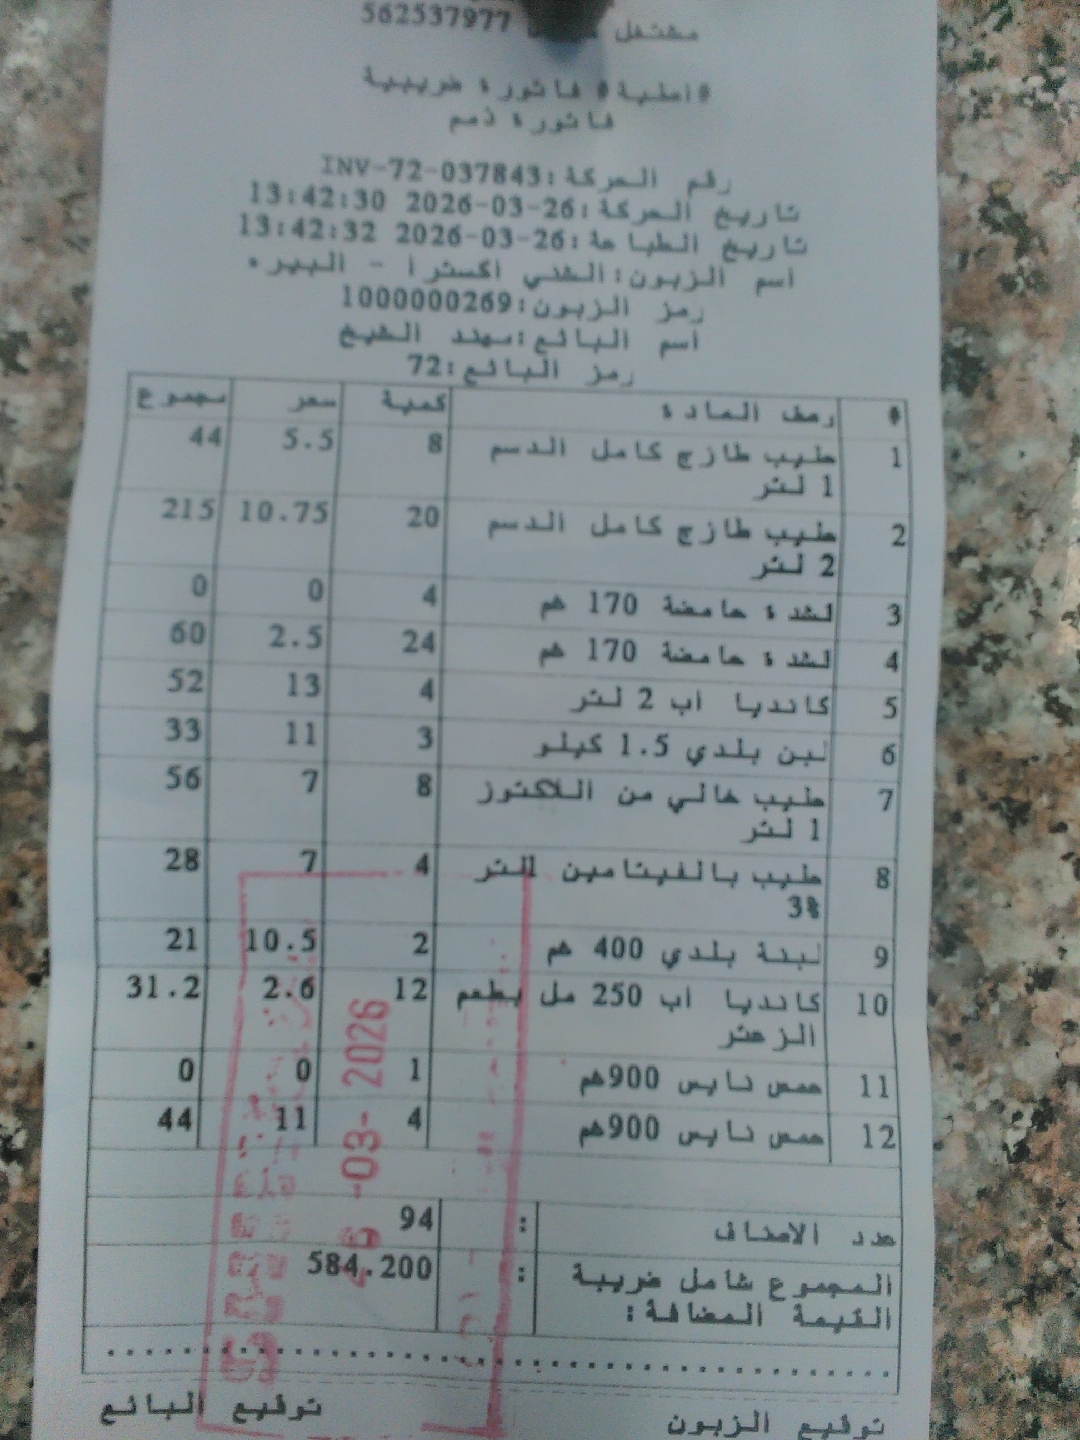 مشتغل 562537977
#أصلية# فاتورة ضريبية
فاتورة ذمم
رقم الحركة:INV-72-037843
تاريخ الحركة:26-03-2026 13:42:30
تاريخ الطباعة:26-03-2026 13:42:32
أسم الزبون:الشني اكسترا - البيره
رمز الزبون:1000000269
أسم البائع:مهند الشيخ
رمز البائع:72
# وصف المادة كمية سعر مجموع
1 حليب طازج كامل الدسم 8 5.5 44
1 لتر
2 حليب طازج كامل الدسم 20 10.75 215
2 لتر
3 قشدة حامضة 170 غم 4 0 0
4 قشدة حامضة 170 غم 24 2.5 60
5 كانديا أب 2 لتر 4 13 52
6 لبن بلدي 1.5 كيلو 3 11 33
7 حليب خالي من اللاكتوز 8 7 56
1 لتر
8 حليب بالفيتامين 1لتر 4 7 28
3%
9 لبنة بلدي 400 غم 2 10.5 21
10 كانديا أب 250 مل بطعم 12 2.6 31.2
الزعتر
11 حمص نايس 900غم 1 0 0
12 حمص نايس 900غم 4 11 44
عدد الاصناف : 94
المجموع شامل ضريبة : 584.200
القيمة المضافة:
توقيع الزبون توقيع البائع
-03- 2026